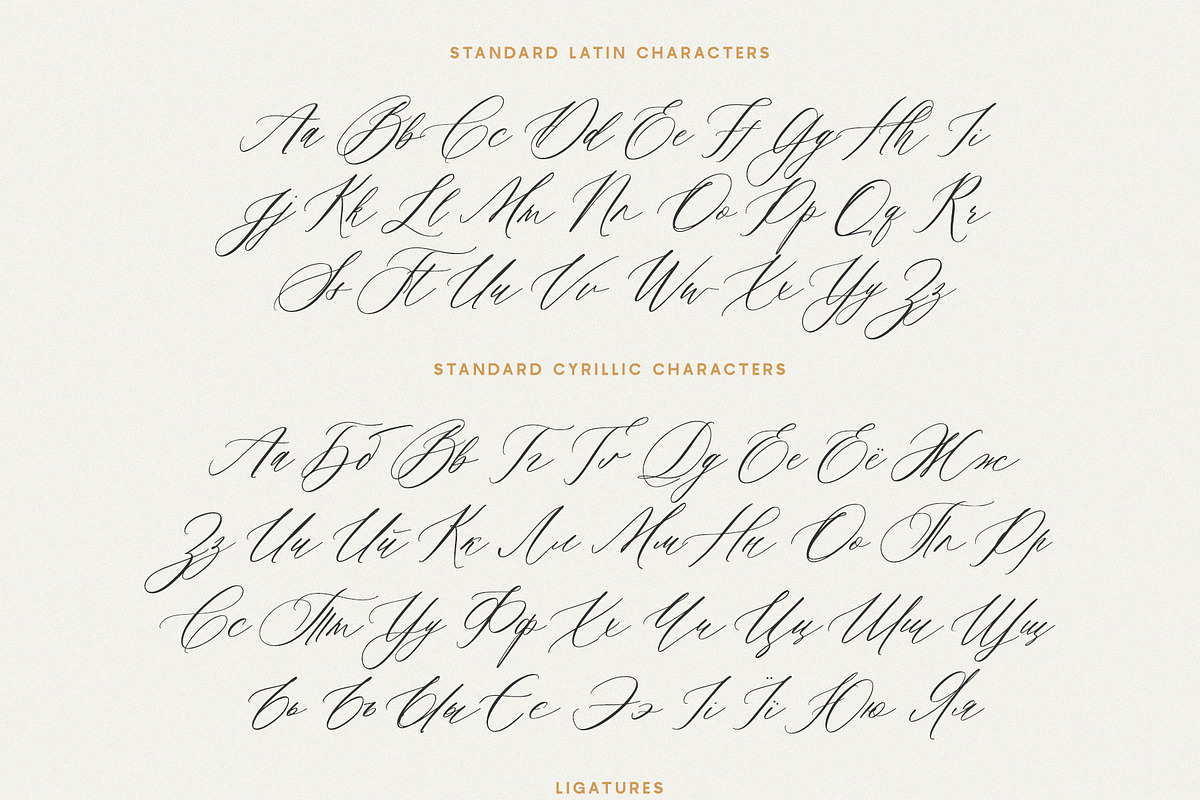 STANDARD LATIN CHARACTERS
Aa Bb Cc Dd Ee Ff Gg Hh Ii
Jj Kk Ll Mm Nn Oo Pp Qq Rr
Ss Tt Uu Vv Ww Xx Yy Zz
STANDARD CYRILLIC CHARACTERS
Аа Бб Вв Гг Ґґ Дд Ее Ёё Жж
Зз Ии Йй Кк Лл Мм Нн Оо Пп Рр
Сс Тт Уу Фф Хх Чч Цц Шш Щщ
Ъъ Ьь Ыы Єє Ээ Іі Її Юю Яя
LIGATURES